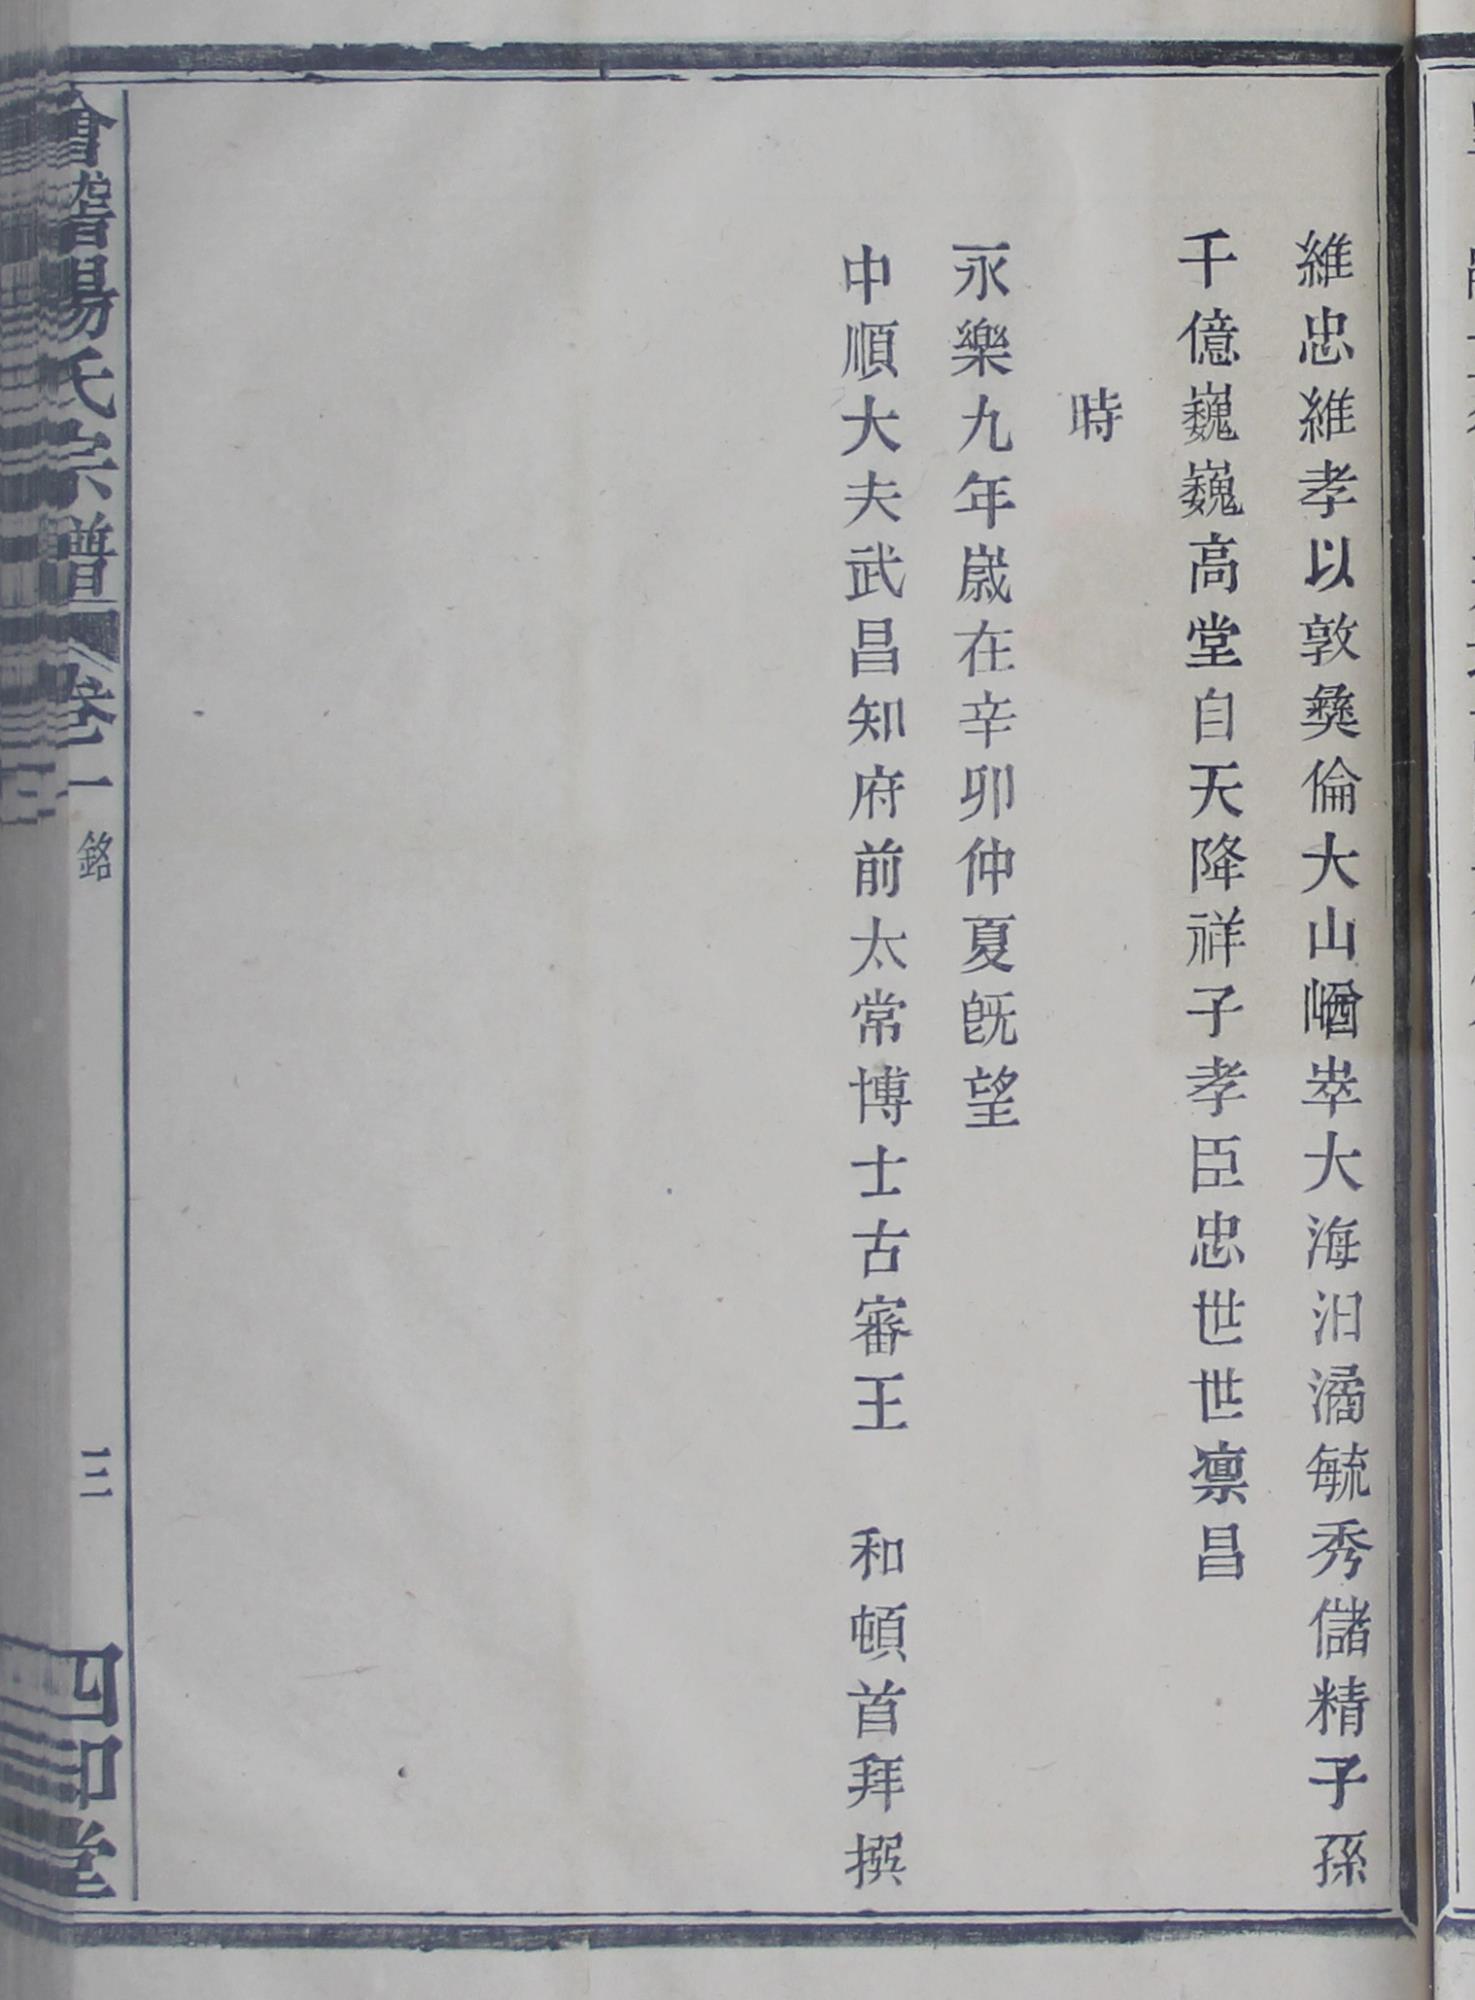 維忠維孝以敦彝倫大山崷崒大海汩潏毓秀儲精子孫
千億巍巍高堂自天降祥子孝臣忠世世禀昌
時
永樂九年嵗在辛卯仲夏既望
中順大夫武昌知府前太常博士古審王　和頓首拜撰
會稽楊氏宗譜 卷一 銘 三 四知堂